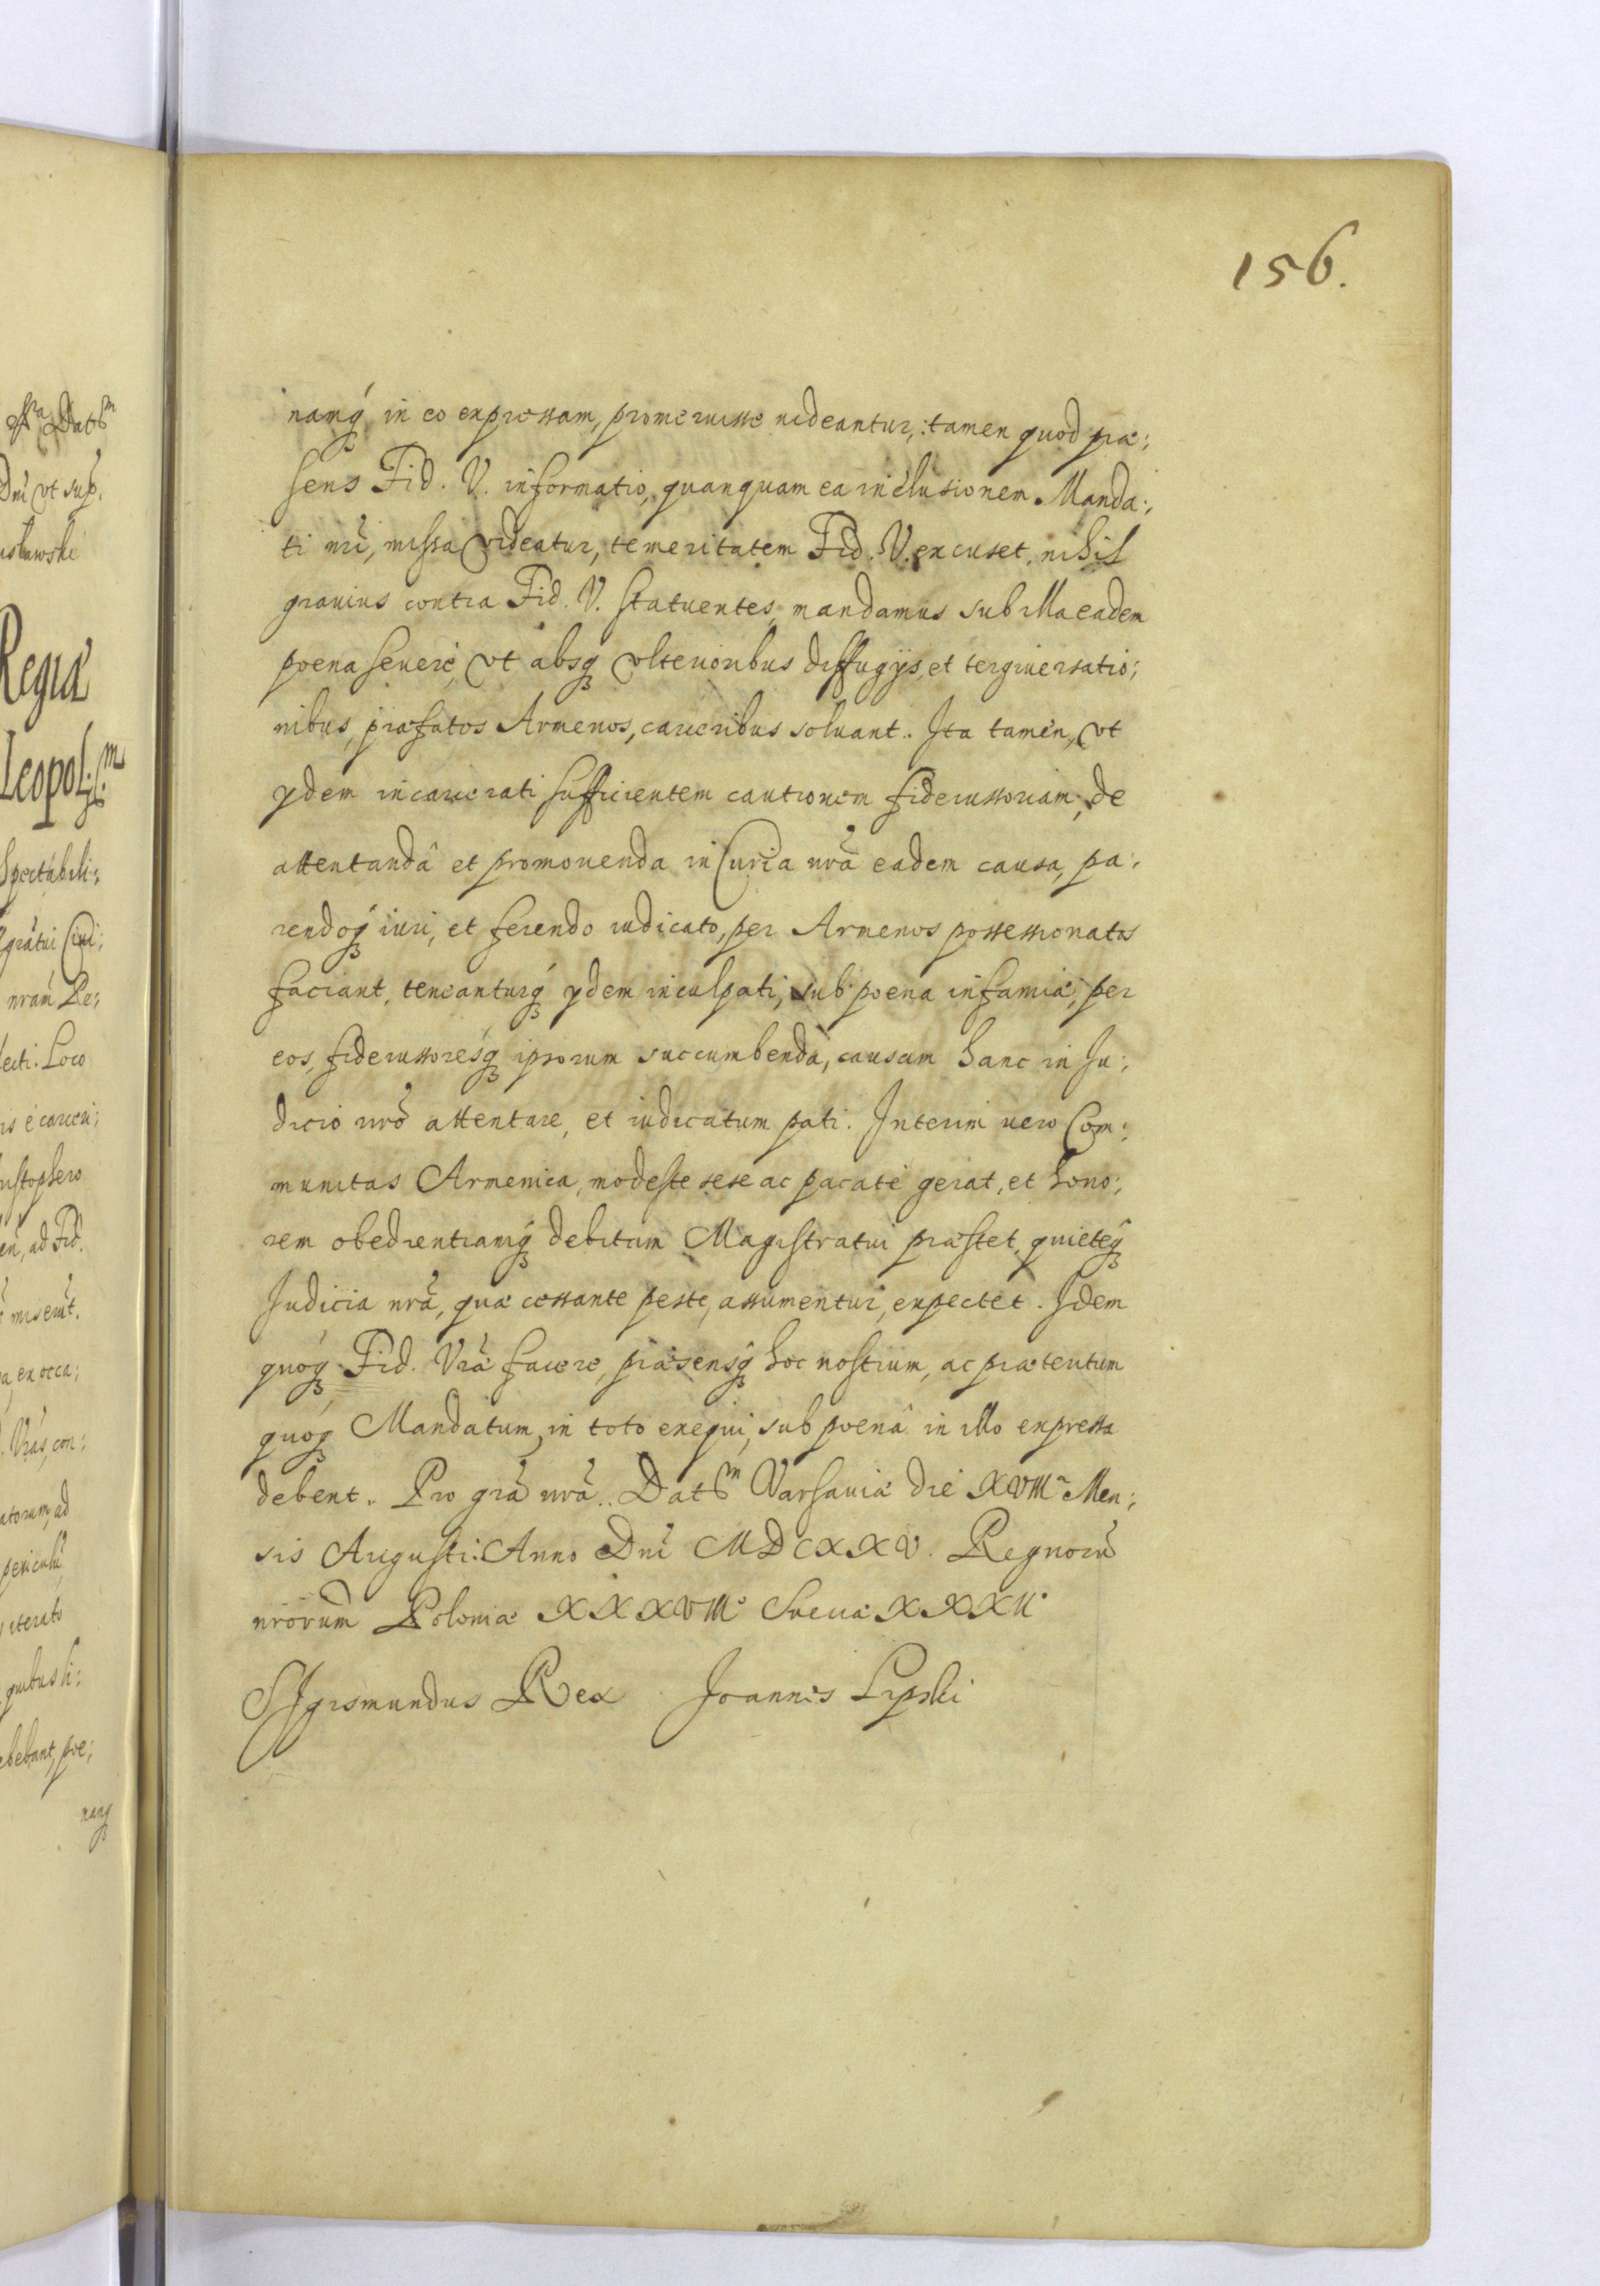 156.
namq́ꝫ in eo expressam, promeruisse uideantur,: tamen quod præ:
sens Fid. V. informatio, quanquam ea in elusionem Manda:
ti nr̃i, missa videatur, temeritatem Fid. V. excuset, nihil
grauius contra Fid. V. statuentes, mandamus sub illa eadem
poena seuerè, vt absqꝫ vlterioribus diffugijs, et tergiuersatio:
nibus, præfatos Armenos, carceribus soluant. Ita tamen, vt
ydem incarcerati sufficientem cautionem fideiussoriam, de
attentandâ et promouenda in Curia nrã eadem causa, pa:
rendoqꝫ iuri, et ferendo iudicato, per Armenos possessionatos
faciant, teneanturq́ꝫ ydem inculpati, sub poena infamiæ, per
eos, fideiussoresq́ꝫ ipsorum succumbenda, causam hanc in Iu:
dicio nrõ attentare, et iudicatum pati. Interim uero Com:
munitas Armenica, modeste sese ac pacatè gerat, et hono:
rem obedientiamq́ꝫ debitam Magistratui præstet, quieteq́ꝫ
Iudicia nrã, quæ cessante peste, assumentur, expectet. Idem
quoqꝫ Fid. Vrã facere, præsensq́ꝫ hoc nostrum, ac prætentum
quoqꝫ Mandatum, in toto exequi, sub poenâ in illo expressa
debent. Pro grã nrã. Datm Varsauiæ die XVIII Men:
sis Augusti: Anno Dnĩ MDCXXV. Regnorũ
nrõrum Poloniæ XXXVIII Sueciæ XXXII
Sigismundus Rex Joannes Lipski